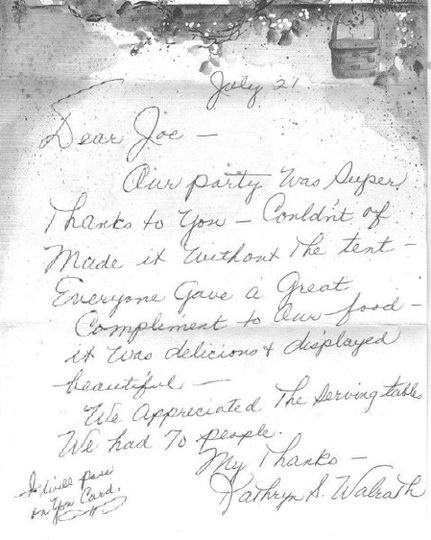 July 21
Dear Joe —
Our party was Super,
Thanks to you — Couldn't of
Made it Without The tent —
Everyone Gave a Great
Compliment to Our food —
it Was delicious & displayed
beautiful —
We Appreciated The Serving tables
We had 70 people.
My Thanks —
Kathryn S. Walrath
I will pass
on You Card.